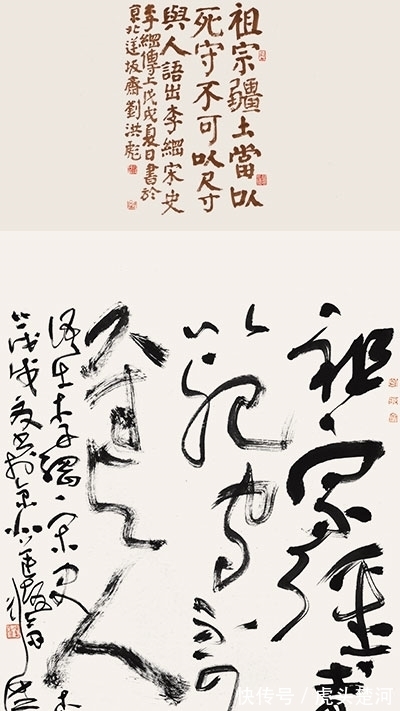 祖宗疆土當以
死守不可以尺寸
與人語出李綱宋史
李綱傳上戊戌夏日書於
京北蓮坂齋劉洪彪
祖宗疆土
以死守不可
人
语出李綱宋史李
戊戌夏书於京北
快传号/虎头楚河